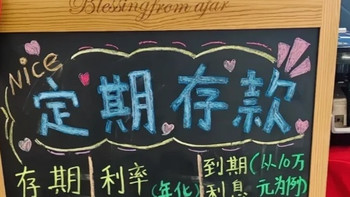 Blessing from afar
Nice
定期存款
存期 利率(年化) 到期利息(以10万元为例)